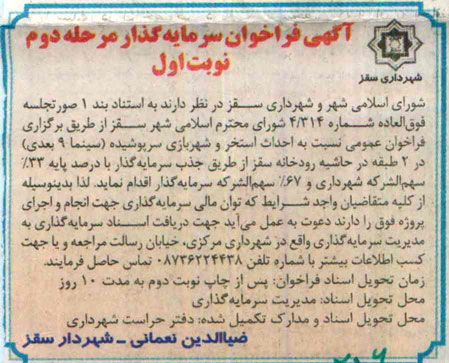 آگهی فراخوان سرمایه‌گذار مرحله دوم
نوبت اول
شهرداری سقز
شورای اسلامی شهر و شهرداری سقز در نظر دارند به استناد بند ۱ صورتجلسه
فوق‌العاده شماره ۴/۳۱۴ شورای محترم اسلامی شهر سقز از طریق برگزاری
فراخوان عمومی نسبت به احداث استخر و شهربازی سرپوشیده (سینما ۹ بعدی)
در ۲ طبقه در حاشیه رودخانه سقز از طریق جذب سرمایه‌گذار با درصد پایه ۳۳٪
سهم‌الشرکه شهرداری و ۶۷٪ سهم‌الشرکه سرمایه‌گذار اقدام نماید. لذا بدینوسیله
از کلیه متقاضیان واجد شرایط که توان مالی سرمایه‌گذاری جهت انجام و اجرای
پروژه فوق را دارند دعوت به عمل می‌آید جهت دریافت اسناد سرمایه‌گذاری به
مدیریت سرمایه‌گذاری واقع در شهرداری مرکزی، خیابان رسالت مراجعه و یا جهت
کسب اطلاعات بیشتر با شماره تلفن ۰۸۷۳۶۲۲۴۴۳۸ تماس حاصل فرمایند.
زمان تحویل اسناد فراخوان: پس از چاپ نوبت دوم به مدت ۱۰ روز
محل تحویل اسناد: مدیریت سرمایه‌گذاری
محل تحویل اسناد و مدارک تکمیل شده: دفتر حراست شهرداری
ضیاالدین نعمانی ـ شهردار سقز